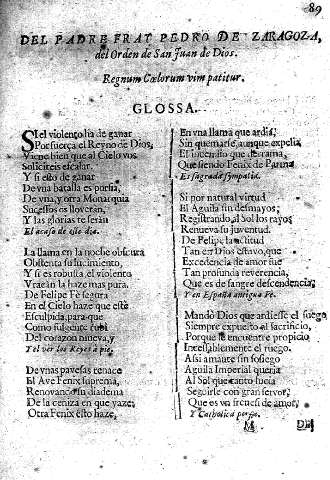 89
DEL PADRE FRAY PEDRO DE ZARAGOZA,
del Orden de San Juan de Dios.
Regnum Cœlorum vim patitur.
GLOSSA.
SI el violento ha de ganar
Por fuerça el Reyno de Dios,
bien que al Cielo vos
Soliciteis escalar.
Y si esto de ganar
De vna batalla es porfia,
De vna, y otra Monarquia
Sucessos os lloverán,
Y las glorias te serán
El acaso de este dia.
La llama en la noche obscura
Obstenta su lucimiento,
Y si es robusta, el violento
la haze mas pura.
De Felipe Fè segura
En el Cielo haze que este
Esculpida, para que
Como fulgente rubi
Del corazon mueva, y
Y el ver los Reyes à pie.
De vnas pavesas renace
El Ave Fenix suprema,
Renovando su diadema
De la ceniza en que yaze,
Otra Fenix esto haze,
En vna llama que ardia,
Sin quemarse, aunque expelia
El incendio que
Que siendo Fenix de
Es sagrada sympatia.
Si por natural virtud
El Aguila sin desmayos,
Registrando al Sol los rayos,
Renueva su juventud.
De Felipe, la
Tan en Dios estavo, que
Excedencia de amor fue
Tan profunda reverencia,
Que es de sangre descendencia,
Y en España antigua Fè.
Mandò Dios que ardiesse el fuego
Siempre expuesto al sacrificio,
Porque le encuentre propicio
Incessablemente el ruego.
Assi amante sin sosiego
Aguila Imperial queria
Al Sol que tanto lucia
Seguirle con gran fervor,
Que es va frenesi de amor,
Y Catholica porfia.
M
DEL